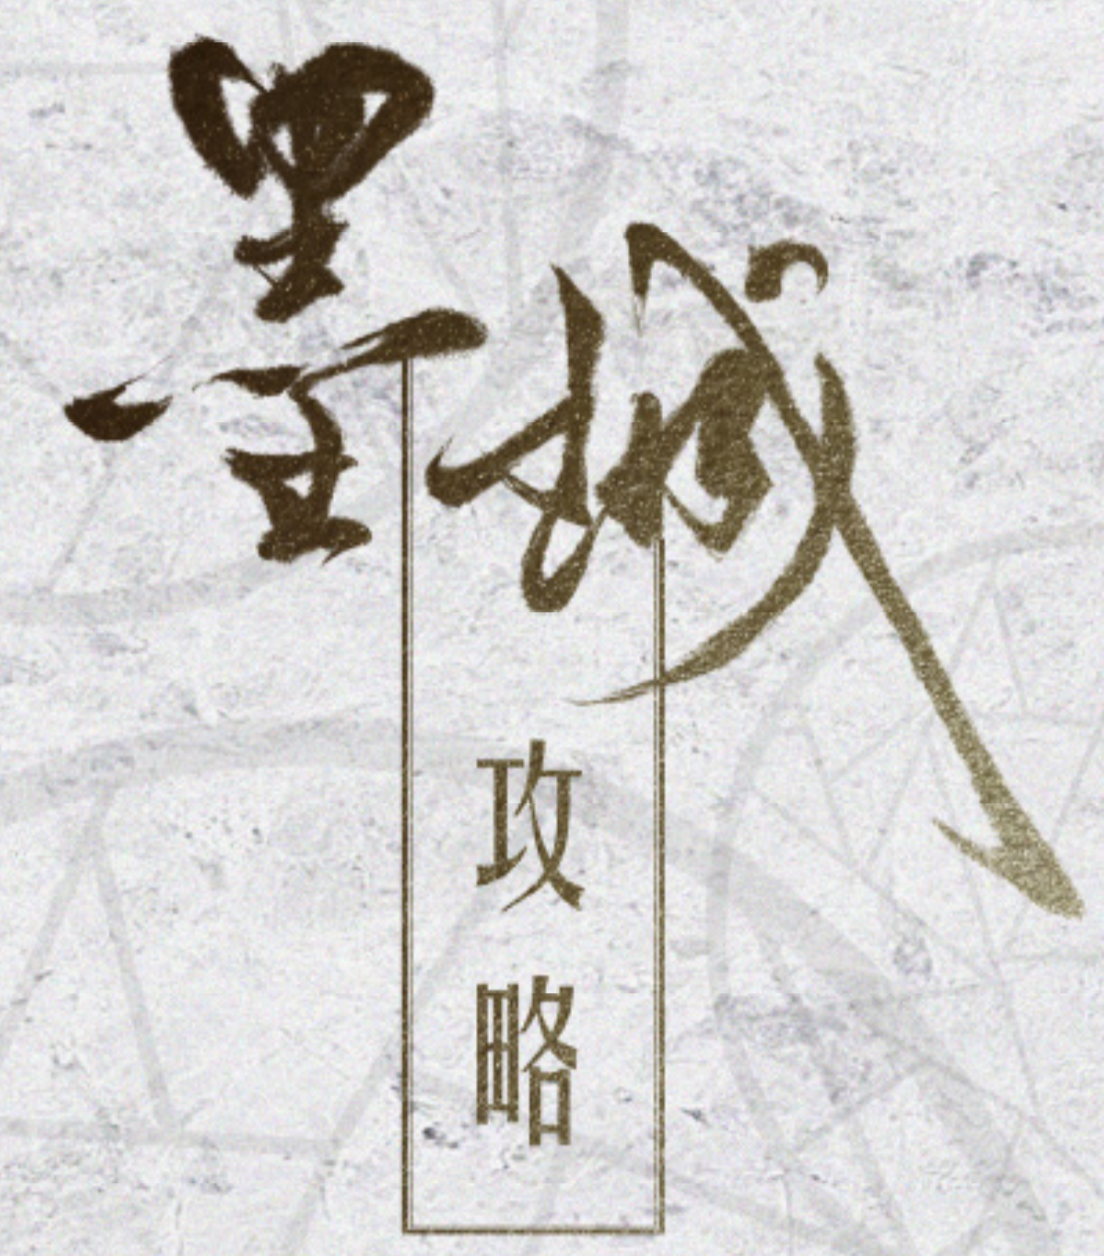 墨城
攻略